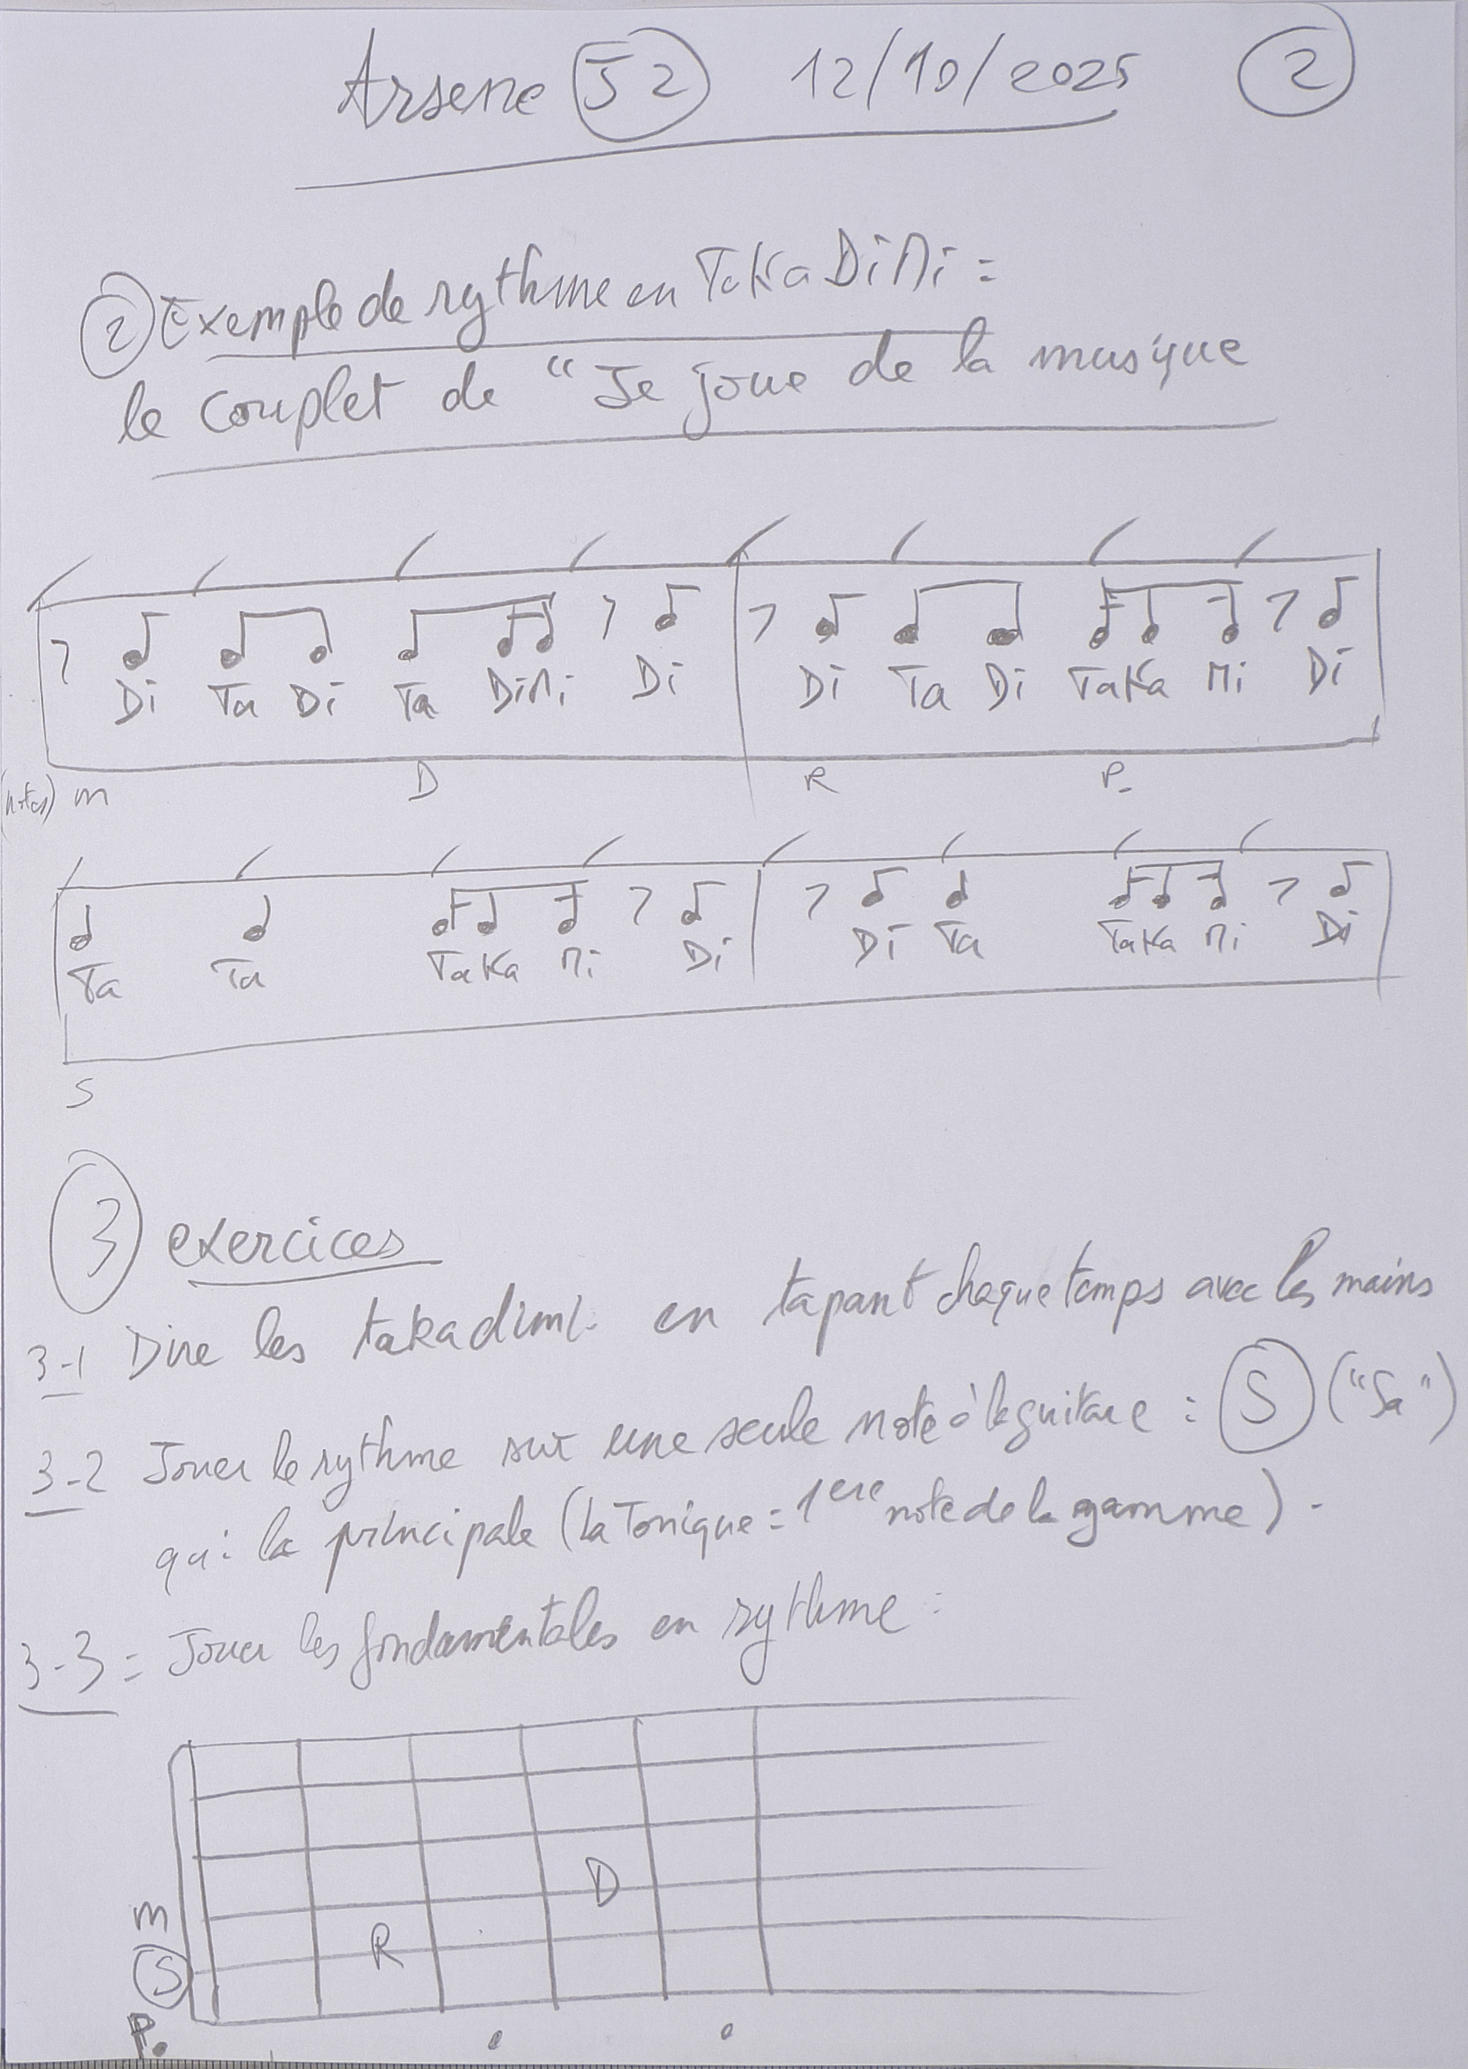 Arsene J2 12/10/2025 2
2 Exemple de rythme en TaKaDiMi :
le couplet de "Je joue de la musique
Di Ta Di Ta DiMi Di Di Ta Di TaKa Mi Di
(notes) m D R P.
Ta Ta TaKa Mi Di Di Ta TaKa Mi Di
S
3 exercices
3-1 Dire les takadimi en tapant chaque temps avec les mains
3-2 Jouer le rythme sur une seule note à la guitare : S ("Sa")
qui la principale (la Tonique = 1ere note de la gamme).
3-3 = Jouer les fondamentales en rythme :
D
m
R
S
P.